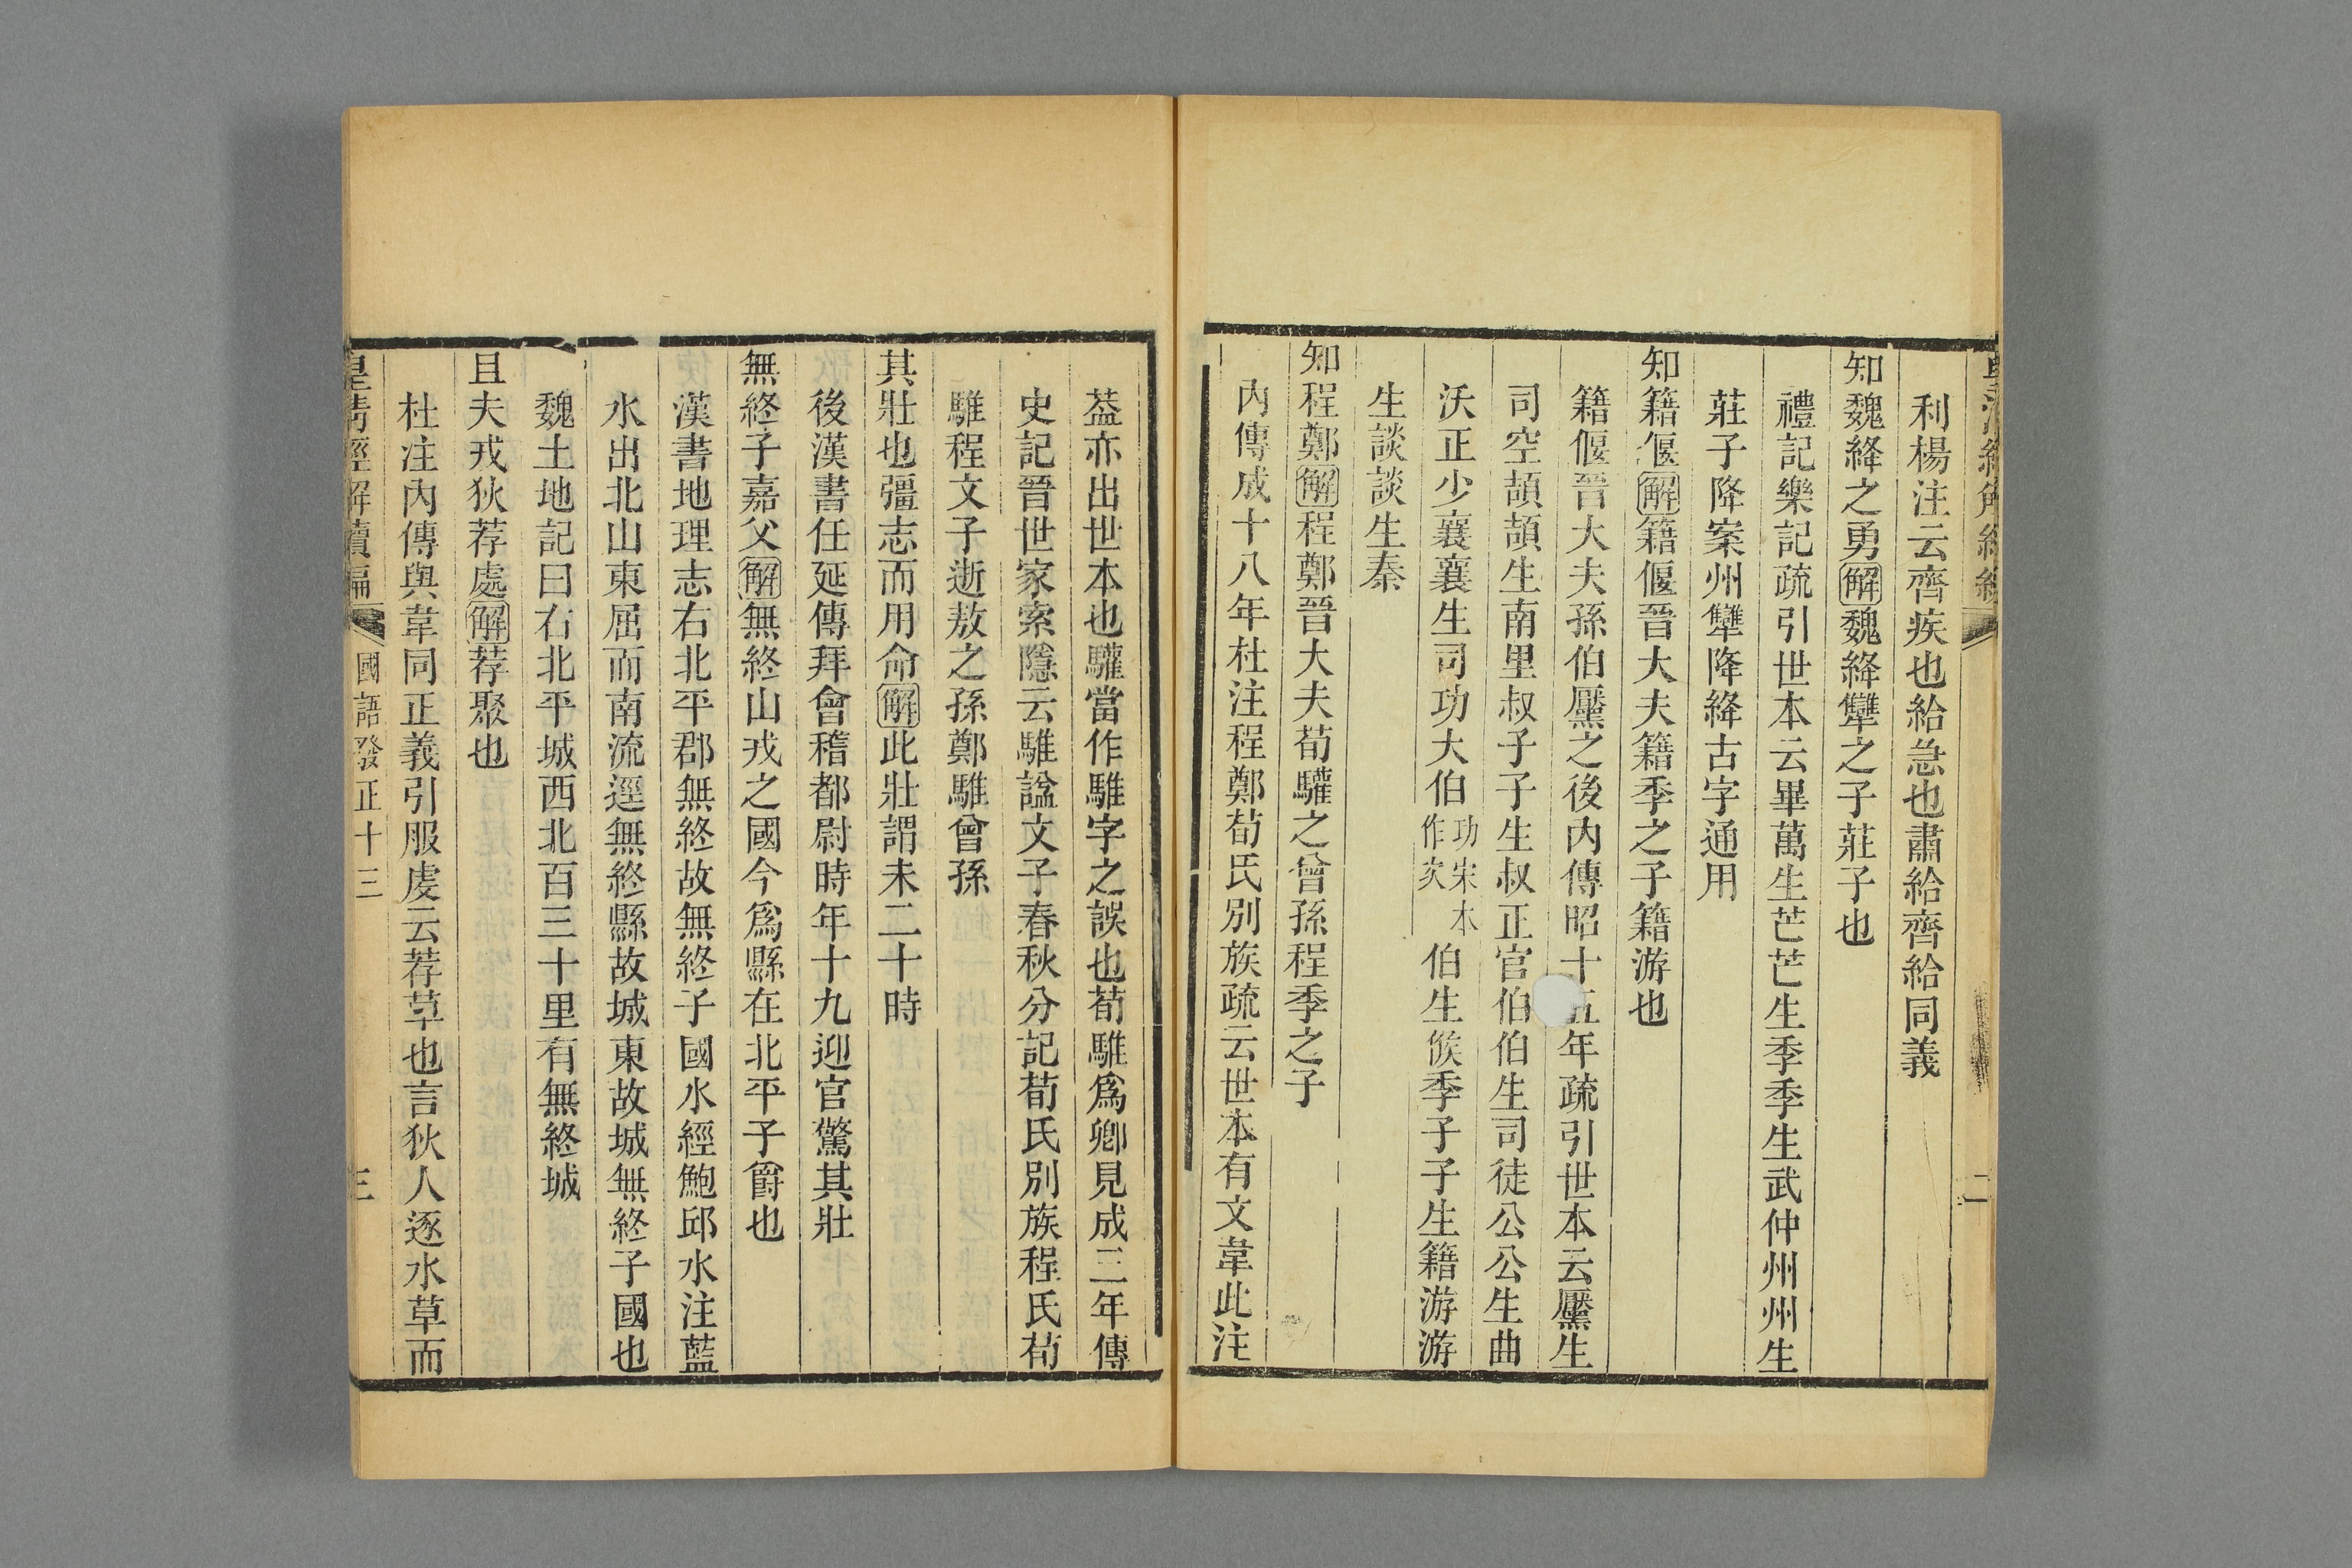 利楊注云齊疾也給急也肅給齊給同義
知魏絳之勇解魏絳犨之子莊子也
禮記樂記疏引世本云畢萬生芒芒生季季生武仲州州生
莊子降案州犨降絳古字通用
知籍偃解籍偃晉大夫籍季之子籍游也
籍偃晉大夫孫伯黶之後內傳昭十五年疏引世本云黶生
司空頡頡生南里叔子子生叔正官伯伯生司徒公公生曲
沃正少襄襄生司功大伯功宋本作次伯生候季子子生籍游游
生談談生秦
知程鄭解程鄭晉大夫荀驩之曾孫程季之子
內傳成十八年杜注程鄭荀氏別族疏云世本有文韋此注
二
葢亦出世本也驩當作騅字之誤也荀騅爲卿見成三年傳
史記晉世家索隱云騅諡文子春秋分記荀氏別族程氏荀
騅程文子逝敖之孫鄭騅曾孫
其壯也彊志而用命解此壯謂未二十時
後漢書任延傳拜會稽都尉時年十九迎官驚其壯
無終子嘉父解無終山戎之國今爲縣在北平子爵也
漢書地理志右北平郡無終故無終子國水經鮑邱水注藍
水出北山東屈而南流逕無終縣故城東故城無終子國也
魏土地記曰右北平城西北百三十里有無終城
且夫戎狄荐處解荐聚也
杜注內傳與韋同正義引服虔云荐草也言狄人逐水草而
皇清經解續編 國語發正十三 三